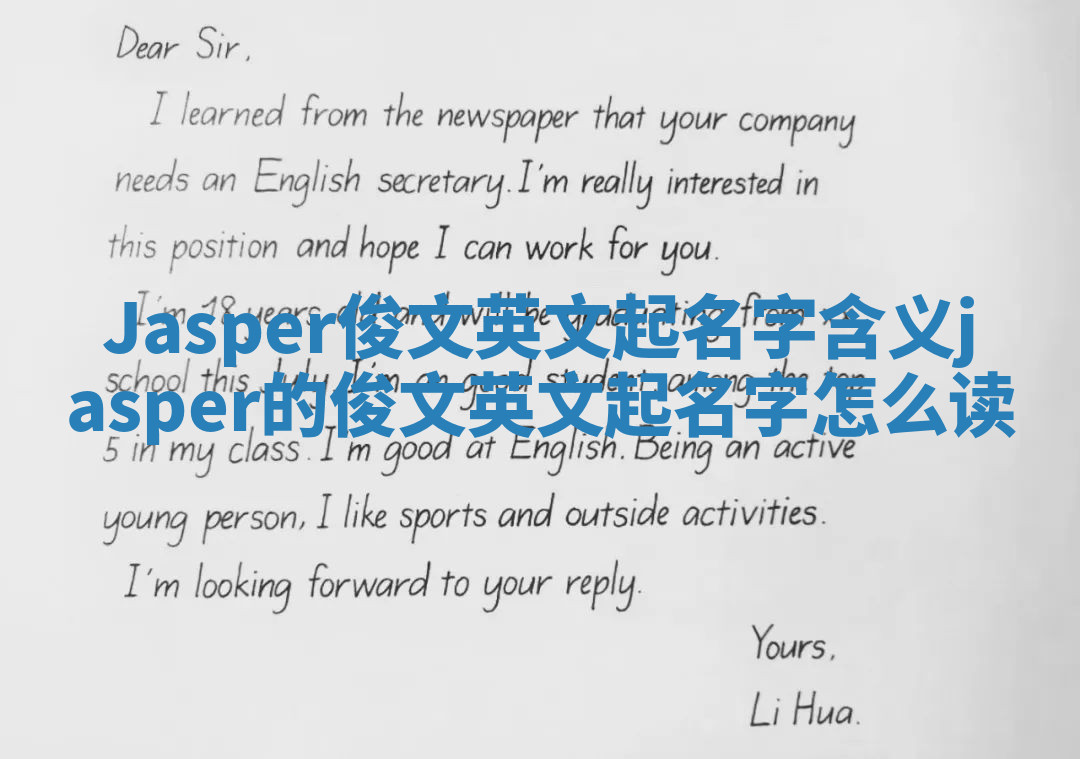 Dear Sir,
I learned from the newspaper that your company
needs an English secretary. I'm really interested in
this position and hope I can work for you.
I'm 18 years old and will be graduating from
Jasper俊文英文起名字含义j
school this July. I'm an good student among the top
asper的俊文英文起名字怎么读
5 in my class. I'm good at English. Being an active
young person, I like sports and outside activities.
I'm looking forward to your reply.
Yours,
Li Hua.